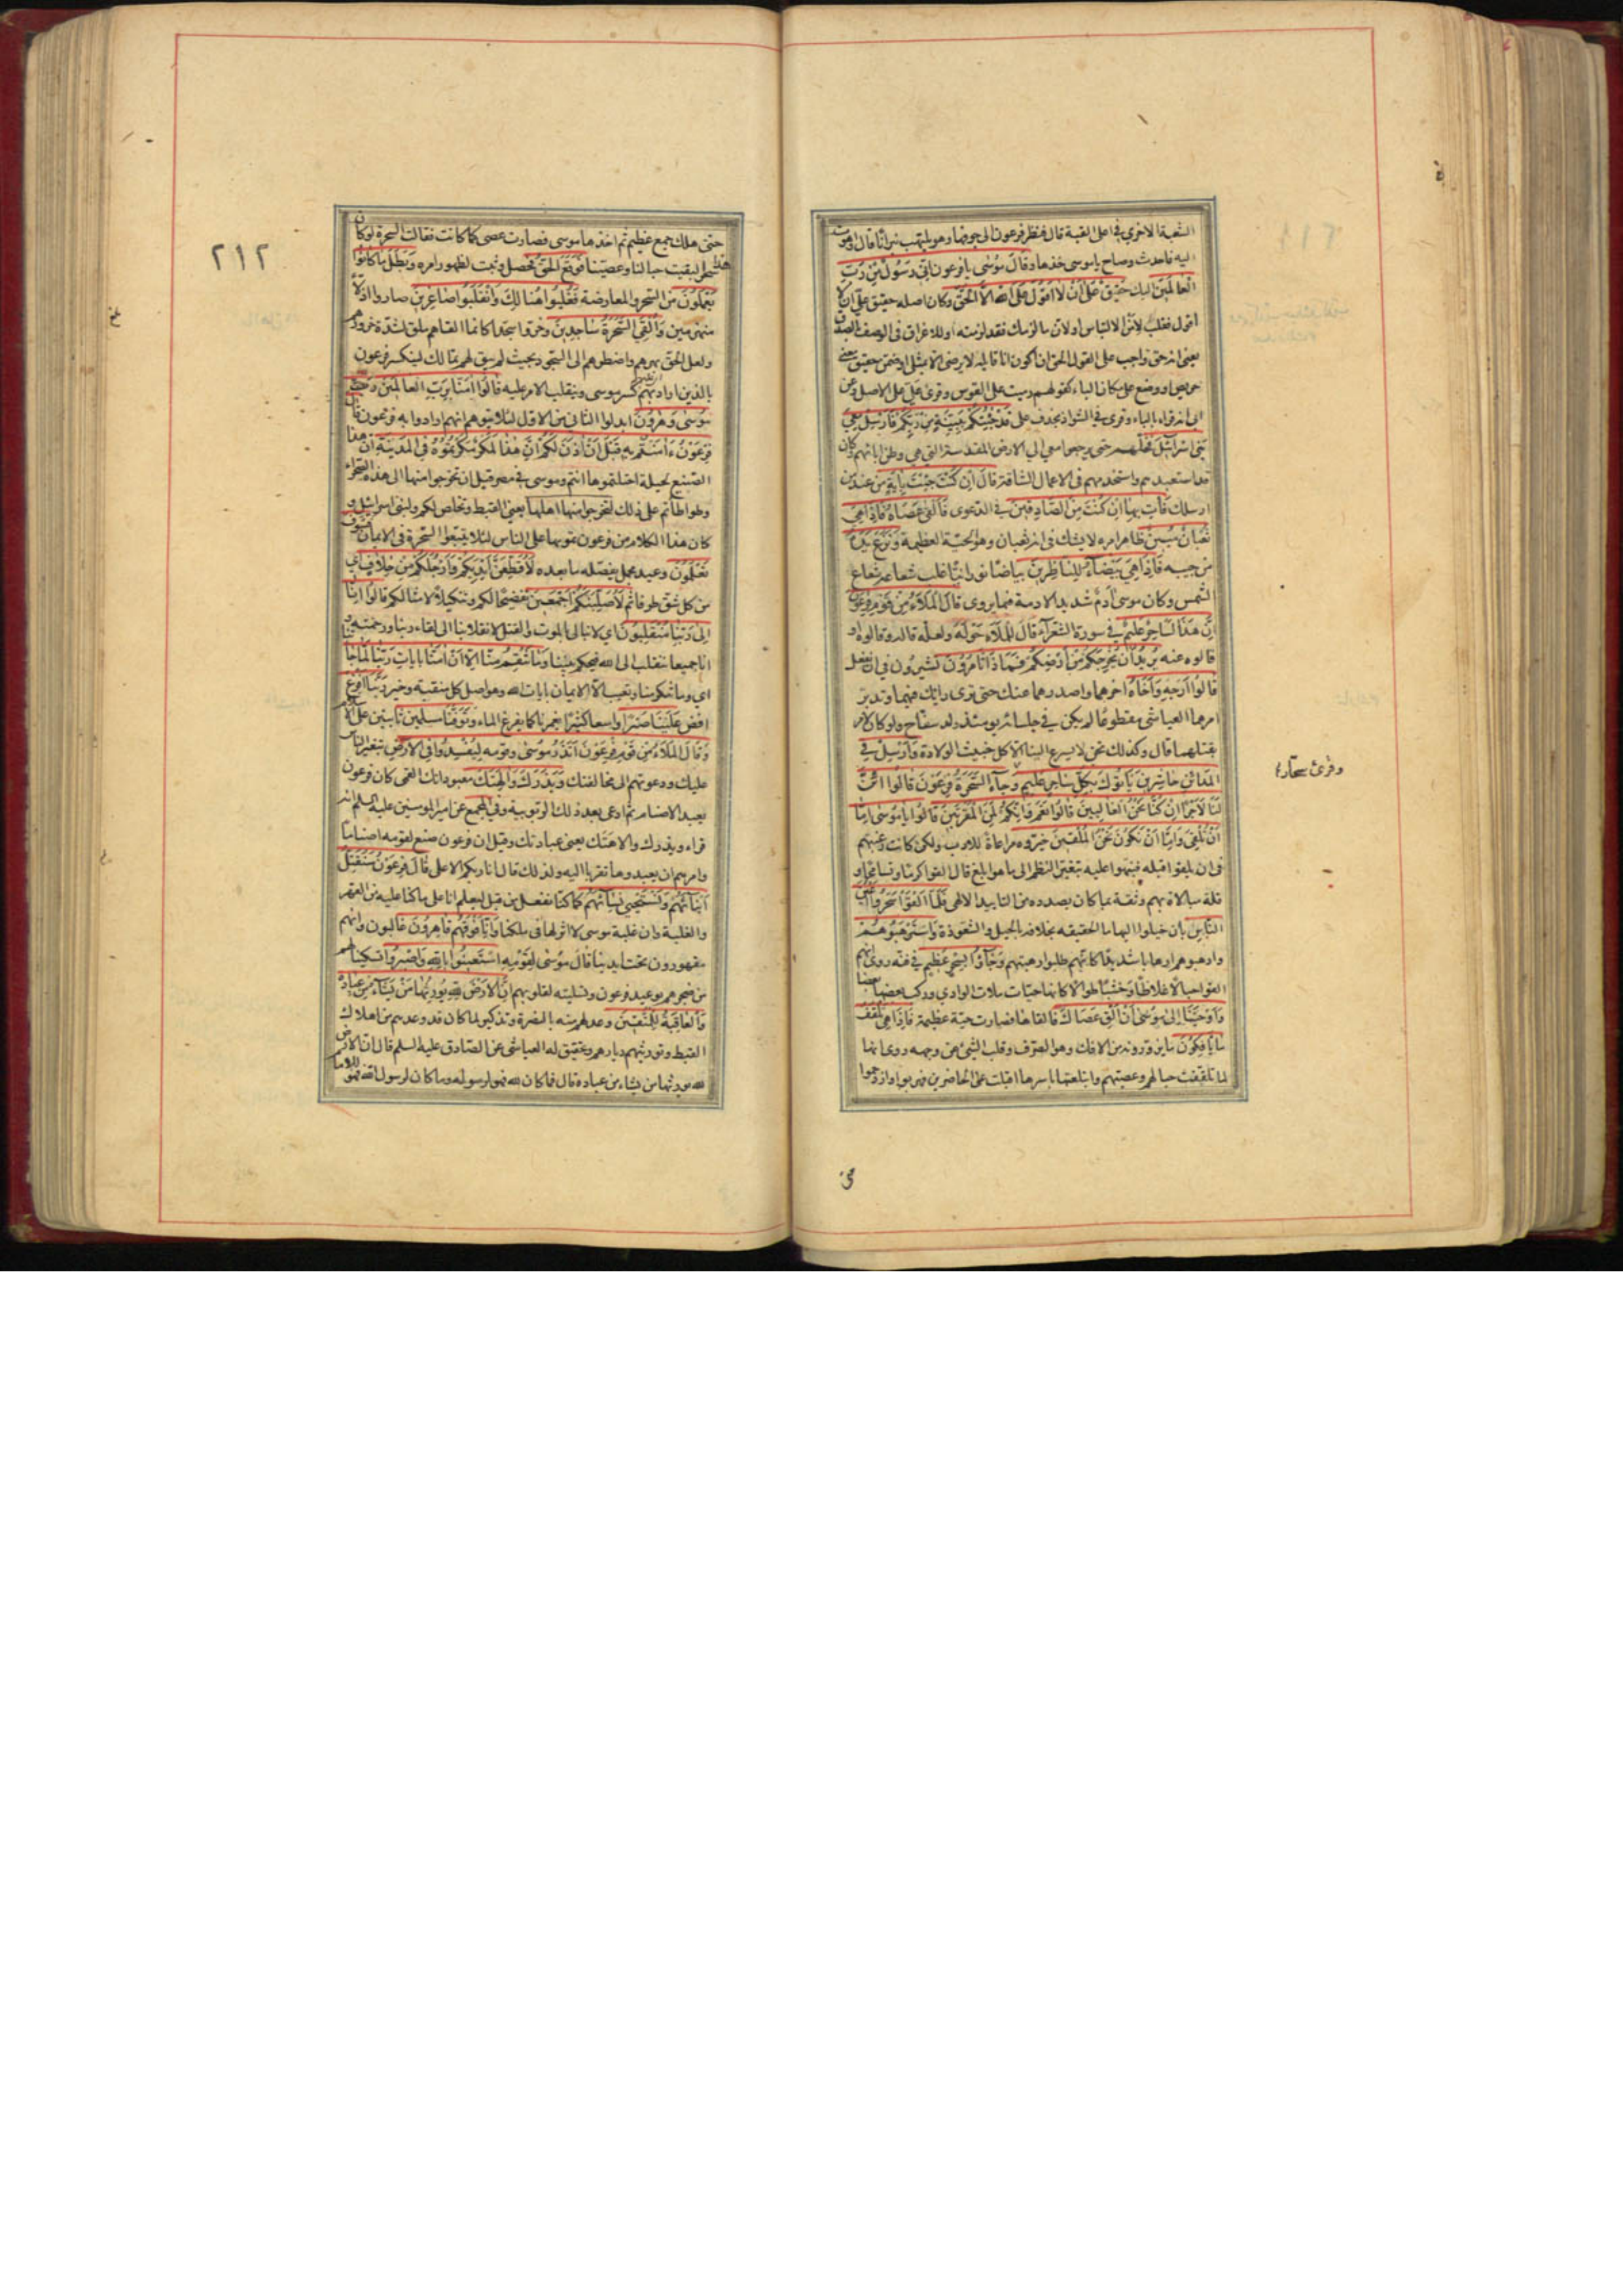 الشعبة الاخرى في اعلى القبة قال فنظر فرعون الى جوفها وهو يلتهب نيرانا فاهوت
اليه فاحدث وصاح يا موسى خذها وقال موسى يا فرعون انى رسول من رب
العالمين اليك حقيق على ان لا اقول على الله الا الحق وكان اصله حقيق على ان لا
اقول فقلب لامن الالتباس اولان ما لزمك فقد لزمته او للاغراق فى الوصف بالصدق
يعنى انه حق واجب على القول الحق ان اكون انا قايله لا يرضى الا بمثلى او ضمن حقيق معنى
حريص او وضع على مكان الباء كقولهم رميت على القوس وقرئ على على الاصل وعن
ابى انه قراء بالباء وقرئ فى الشواذ بحذف على قد جئتكم ببينة من ربكم فارسل معى
بنى اسرائيل فخلهم حتى يرجعوا معى الى الارض المقدسة التى هى وطن ابائهم وكان
قد استعبدهم واستخدمهم فى الاعمال الشاقة قال ان كنت جئت باية من عند من
ارسلك فات بها ان كنت من الصادقين فى الدعوى فالقى عصاه فاذا هى
ثعبان مبين ظاهر امره لا يشك فى انه ثعبان وهو الحية العظيمة ونزع يده
من جيبه فاذا هى بيضاء للناظرين بياضا نورانيا غلب شعاعه شعاع
الشمس وكان موسى آدم شديد الادمة فيما يروى قال الملاء من قوم فرعون
ان هذا لساحر عليم فى سورة الشعراء قال للملاء حوله ولعله قاله وقالوه او
قالوه عنه يريد ان يخرجكم من ارضكم فماذا تامرون تشيرون فى ان نفعل
قالوا ارجه واخاه اخرهما واصدرهما عنك حتى ترى رايك فيهما وتدبر
امرهما العياشى مقطوعا لم يكن فى جلسائه يومئذ ولد سفاح ولو كان لامر
بقتلهما قال وكذلك نحن لا يسرع الينا الا كل خبيث الولادة وارسل فى
المدائن حاشرين ياتوك بكل ساحر عليم وجاء السحرة فرعون قالوا ائن
لنا لاجرا ان كنا نحن الغالبين قالوا نعم وانكم لمن المقربين قالوا يا موسى اما
ان تلقى واما ان نكون نحن الملقين خيروه مراعاة للادب ولكن كانت رغبتهم
فى ان يلقوا قبله فنبهوا عليه بتغيير النظم الى ما هو ابلغ قال القوا كرما وتسامحا و
قلة مبالاة بهم وثقة بما كان بصدده من التاييد الالهى فلما القوا سحروا اعين
الناس بان خيلوا اليها ما الحقيقه بخلافه بالحيل والشعوذة واسترهبوهم
وارهبوهم ارهابا شديدا كانهم طلبوا رهبتهم وجاؤا بسحر عظيم فى فنه روى انهم
القوا حبالا غلاظا وخشبا طوالا كانها حيات ملات الوادى وركب بعضها بعضا
واوحينا الى موسى ان الق عصاك فالقاها فصارت حية عظيمة فاذا هى تلقف
ما يافكون ما يزورونه من الافك وهو الصرف وقلب الشئ عن وجهه روى انها
لما تلقفت حبالهم وعصيهم وابتلعتها باسرها اقبلت على الحاضرين فهربوا وازدحموا
وقرئ سحّار
حتى
٢١٢
حتى هلك جمع عظيم ثم اخذها موسى فصارت عصى كما كانت فقالت السحرة لو كان
هذا سحرا لبقيت حبالنا وعصينا فوقع الحق فحصل وثبت لظهور امره وبطل ما كانوا
يعملون من السحر والمعارضة فغلبوا هنالك وانقلبوا صاغرين صاروا اذلاء
منهزمين والقى السحرة ساجدين وخروا سجدا كانما القاهم ملق لشدة خرورهم
ولعل الحق بهرهم واضطرهم الى السجود بحيث لم يبق لهم تمالك لينكسر فرعون
بالذين اراد بهم كسر موسى وينقلب الامر عليه قالوا امنا برب العالمين رب
موسى وهرون ابدلوا الثانى من الاول لئلا يتوهم انهم ارادوا به فرعون قال
فرعون ءامنتم به قبل ان اذن لكم ان هذا لمكر مكرتموه فى المدينة ان هذا
الصنيع لحيلة احتلتموها انتم وموسى فى مصر قبل ان تخرجوا منها الى هذه الصحراء
وطواطاتم على ذلك لتخرجوا منها اهلها يعنى القبط وتخلص لكم ولبنى اسرائيل و
كان هذا الكلام من فرعون تمويها على الناس لئلا يتبعوا السحرة فى الايمان فسوف
تعلمون وعيد مجمل يفصله ما بعده لاقطعن ايديكم وارجلكم من خلاف اى
من كل شق طرفا ثم لاصلبنكم اجمعين تفضيحا لكم وتنكيلا لامثالكم قالوا انا
الى ربنا منقلبون اى لا نبالى بالموت والقتل لانقلابنا الى لقاء ربنا ورحمته او
انا جميعا ننقلب الى الله فيحكم بيننا وما تنقم منا الا ان امنا بايات ربنا لما جاءتنا
اى وما تنكر منا وتعيب الا الايمان بايات الله وهو اصل كل منقبة وخير ربنا افرغ
افض علينا صبرا واسعا كثيرا يغمرنا كما يفرغ الماء وتوفنا مسلمين ثابتين على الاسلام
وقال الملاء من قوم فرعون اتذر موسى وقومه ليفسدوا فى الارض بتغيير الناس
عليك ودعوتهم الى مخالفتك ويذرك والهتك معبوداتك القمى كان فرعون
يعبد الاصنام ثم ادعى بعد ذلك الربوبية وفى المجمع عن امير المومنين عليه السلم انه
قراء ويذرك والاهتك يعنى عبادتك وقيل ان فرعون صنع لقومه اصناما
وامرهم ان يعبدوها تقربا اليه ولذلك قال انا ربكم الاعلى قال فرعون سنقتل
ابنائهم ونستحيى نسائهم كما كنا نفعل من قبل ليعلم انا على ما كنا عليه من القهر
والغلبة وان غلبة موسى لا اثر لها فى ملكنا وانا فوقهم قاهرون غالبون وانهم
مقهورون تحت ايدينا قال موسى لقومه استعينوا بالله واصبروا تسكينا لهم
من ضجرهم بوعيد فرعون وتسليته لقلوبهم ان الارض لله يورثها من يشاء من عباده
والعاقبة للمتقين وعد لهم منه بالنصرة وتذكير لما كان قد وعدهم من اهلاك
القبط وتوريثهم ديارهم وتحقيق له العياشى عن الصادق عليه السلم قال ان الارض
لله يورثها من يشاء من عباده قال فما كان لله فهو لرسوله وما كان لرسول الله فهو للامام